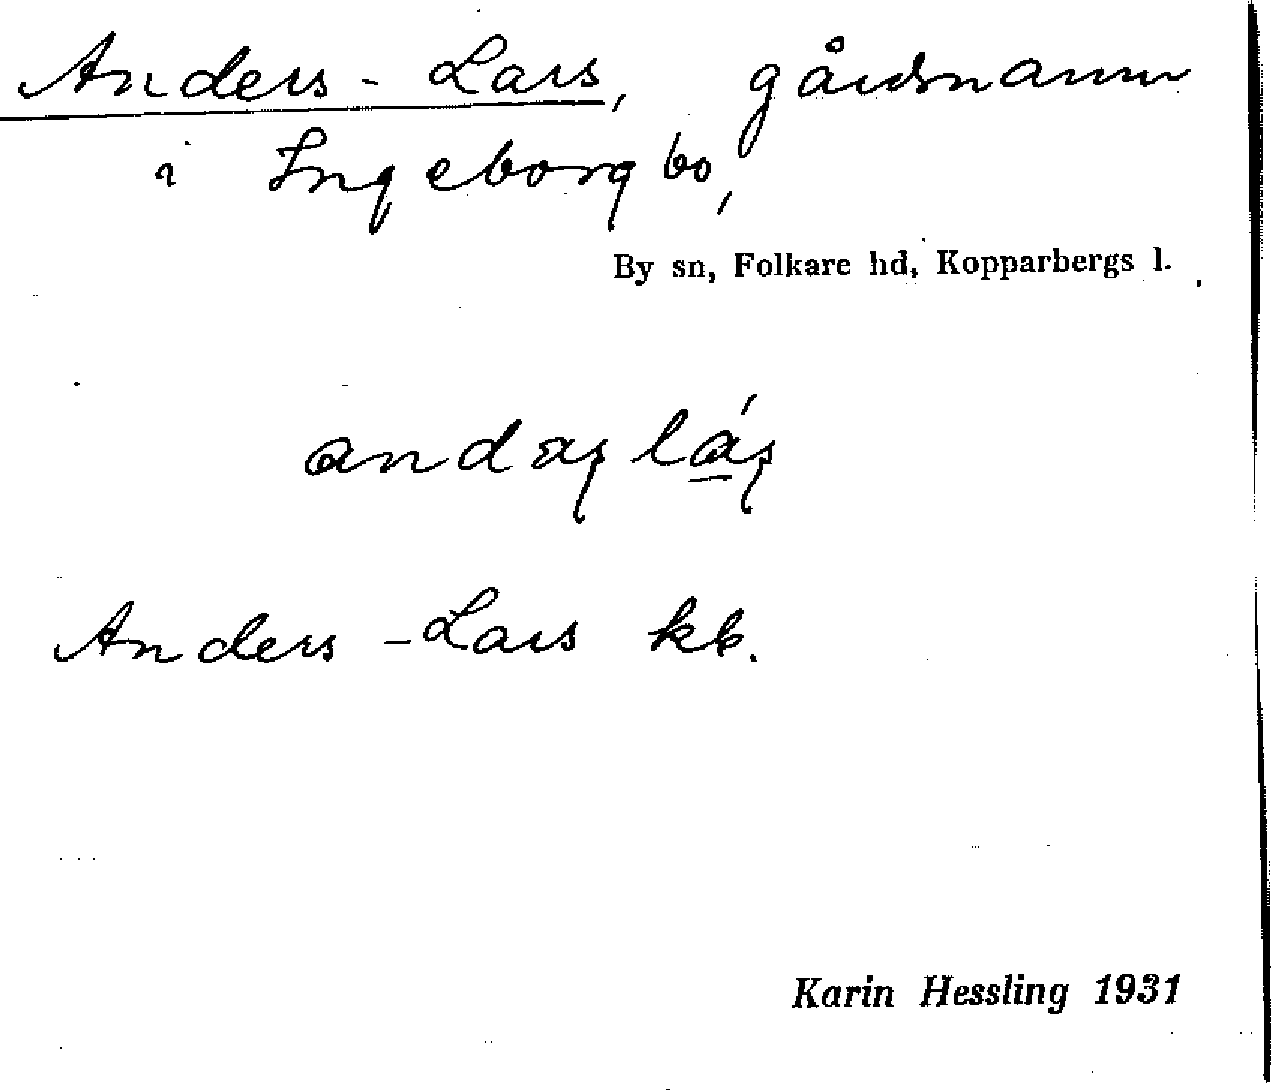 Anders-Lars, gårdsnamn
i Ingeborgbo,
By sn, Folkare hd, Kopparbergs l.
Anders-Lars kb.
Karin Hessling 1931